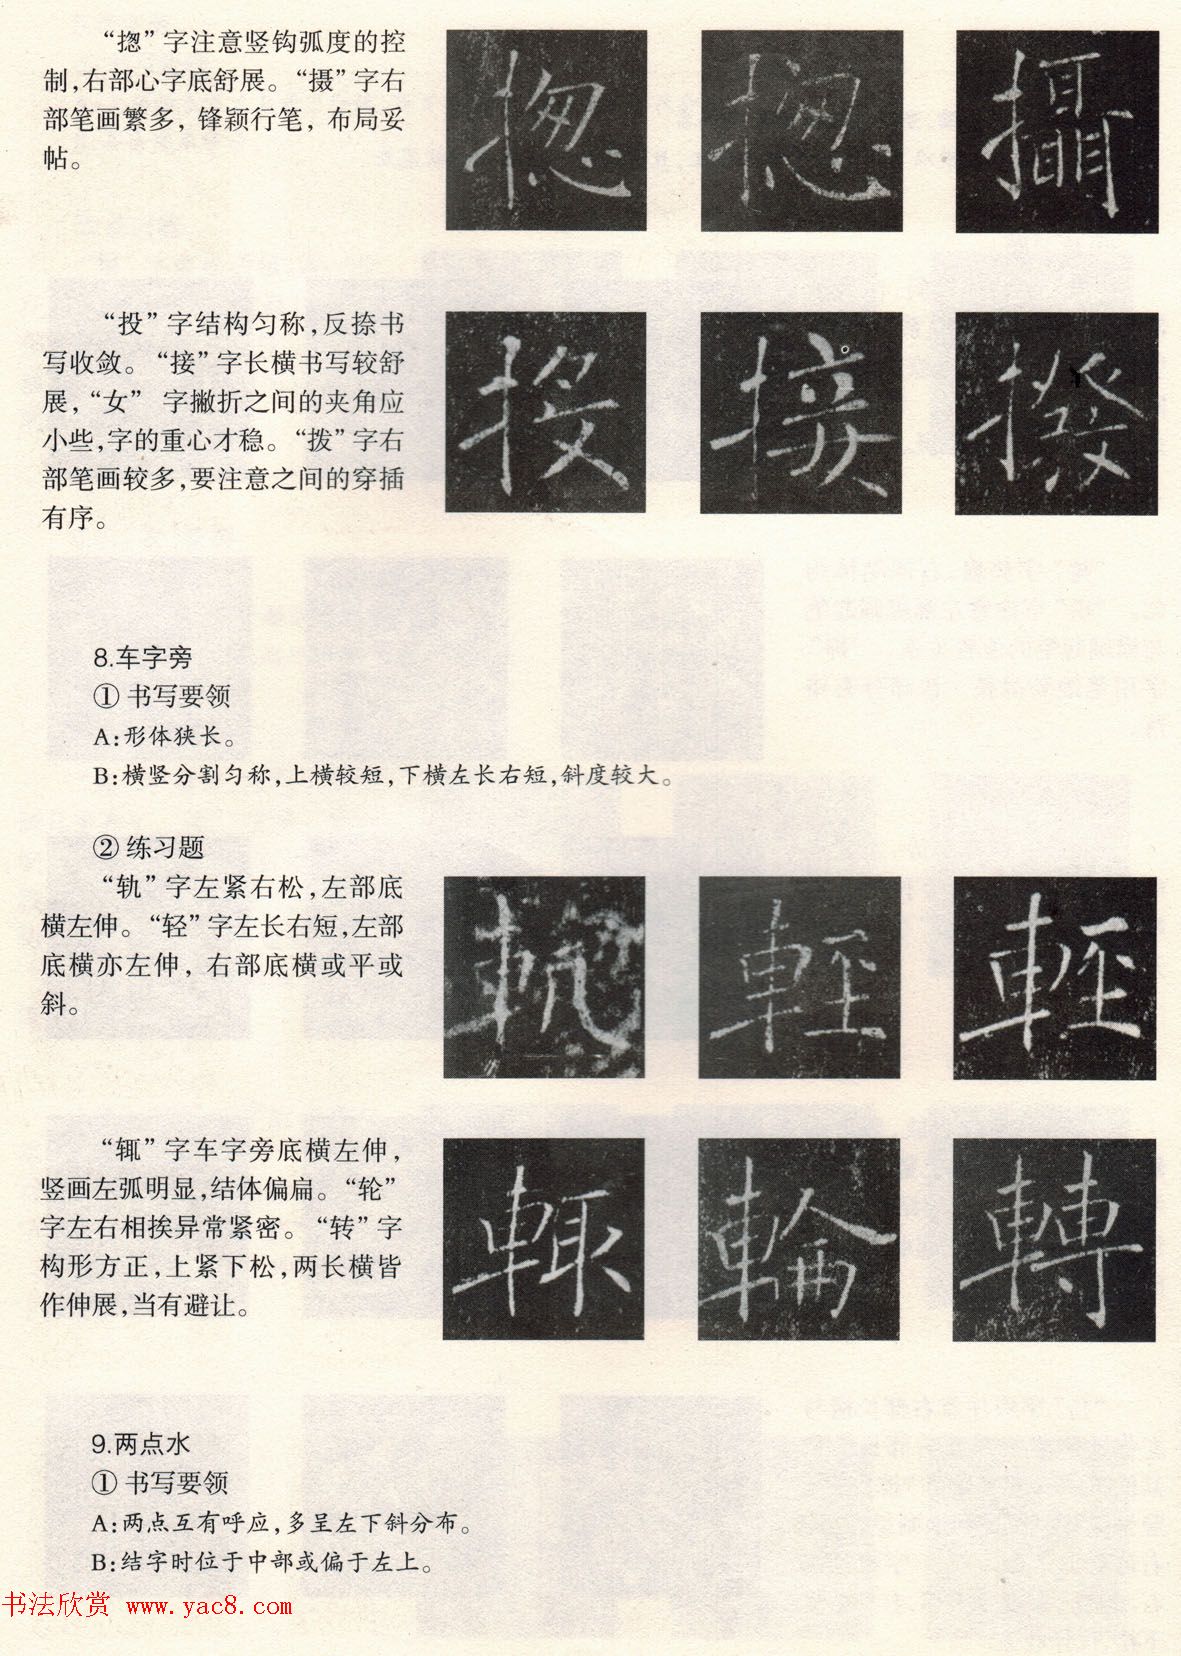 “揔”字注意竖钩弧度的控
制,右部心字底舒展。“摄”字右
部笔画繁多, 锋颖行笔, 布局妥
帖。
揔 揔 攝
“投”字结构匀称,反捺书
写收敛。“接”字长横书写较舒
展,“女” 字撇折之间的夹角应
小些,字的重心才稳。“拨”字右
部笔画较多,要注意之间的穿插
有序。
投 接 撥
8.车字旁
① 书写要领
A:形体狭长。
B:横竖分割匀称,上横较短,下横左长右短,斜度较大。
② 练习题
“轨”字左紧右松,左部底
横左伸。“轻”字左长右短,左部
底横亦左伸, 右部底横或平或
斜。
軌 輕 輕
“辄”字车字旁底横左伸,
竖画左弧明显,结体偏扁。“轮”
字左右相挨异常紧密。“转”字
构形方正,上紧下松,两长横皆
作伸展,当有避让。
輙 輪 轉
9.两点水
① 书写要领
A:两点互有呼应,多呈左下斜分布。
B:结字时位于中部或偏于左上。
书法欣赏 www.yac8.com